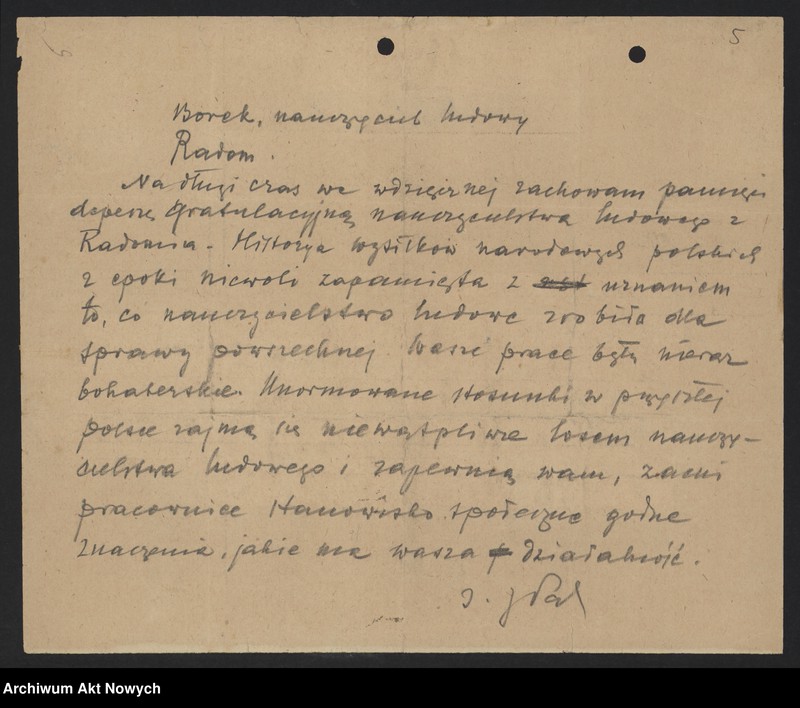 5
Borek, nauczyciel ludowy
Radom.
Na długi czas we wdzięcznej zachowam pamięci
depeszę gratulacyjną nauczycielstwa ludowego z
Radomia. Historya wysiłków narodowych polskich
z epoki niewoli zapamięta z uznaniem
to, co nauczycielstwo ludowe zrobiło dla
sprawy powszechnej. Wasze prace były nieraz
bohaterskie. Unormowane stosunki w przyszłej
Polsce zajmą się niewątpliwie losem nauczy-
cielstwa ludowego i zapewnią wam, zacni
pracownice stanowisko społeczne godne
znaczenia, jakie ma wasza działalność.
Archiwum Akt Nowych